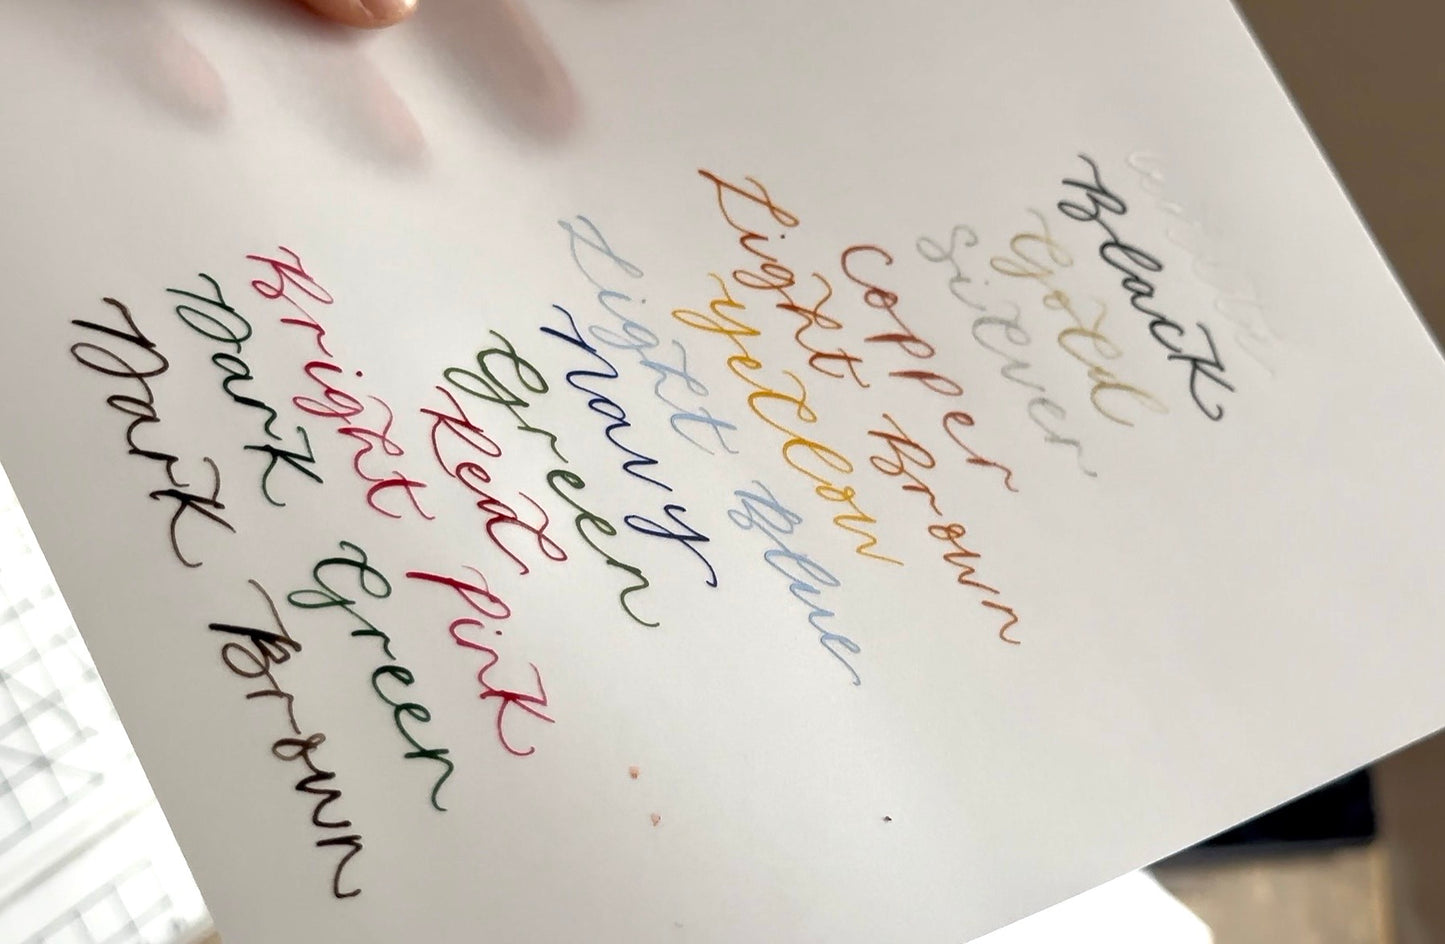 Black
Gold
Silver
Copper
Light Brown
Yellow
Light Blue
Navy
Green
Red
Bright Pink
Dark Green
Dark Brown